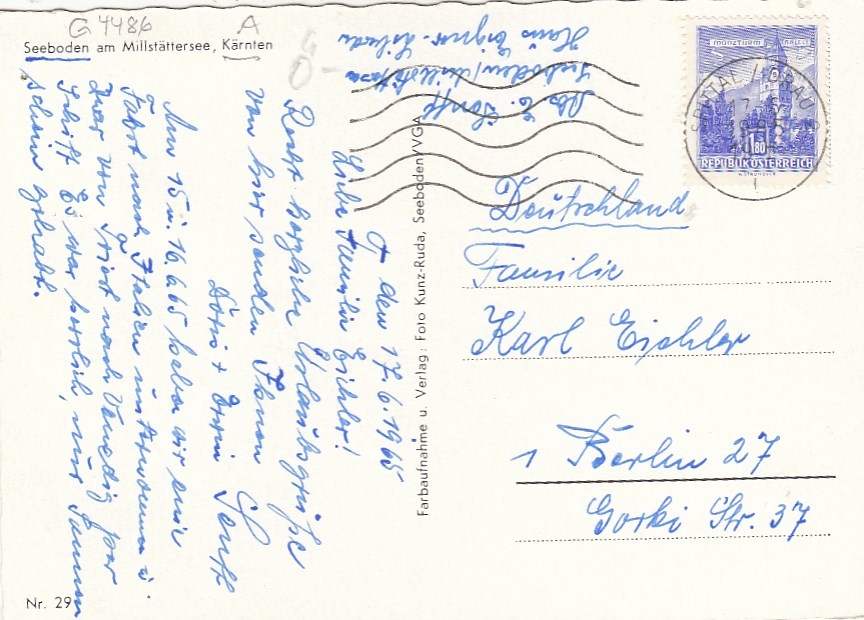 G 4486 A
Seeboden am Millstättersee, Kärnten
Abs. E. Senft
Seeboden/Millstätter
Haus
Ö, den 17.6.1965
Liebe Familie Eichler!
Recht herzliche Urlaubsgrüße
von hier senden Ihnen
Doris + Erwin Senft
Am 15 u. 16.6.65 haben wir eine
Fahrt nach Italien unternommen u.
zwar von Triest nach Venedig per
Schiff. Es war herrlich, nur Sonnen
schein gehabt.
Nr. 29
Farbaufnahme u. Verlag: Foto Kunz-Ruda, Seeboden/VGA
MÜNZTURM HALL I.T.
1.80
REPUBLIK ÖSTERREICH
SPITTAL / DRAU
Deutschland
Familie
Karl Eichler
1 Berlin 27
Gorki Str. 37